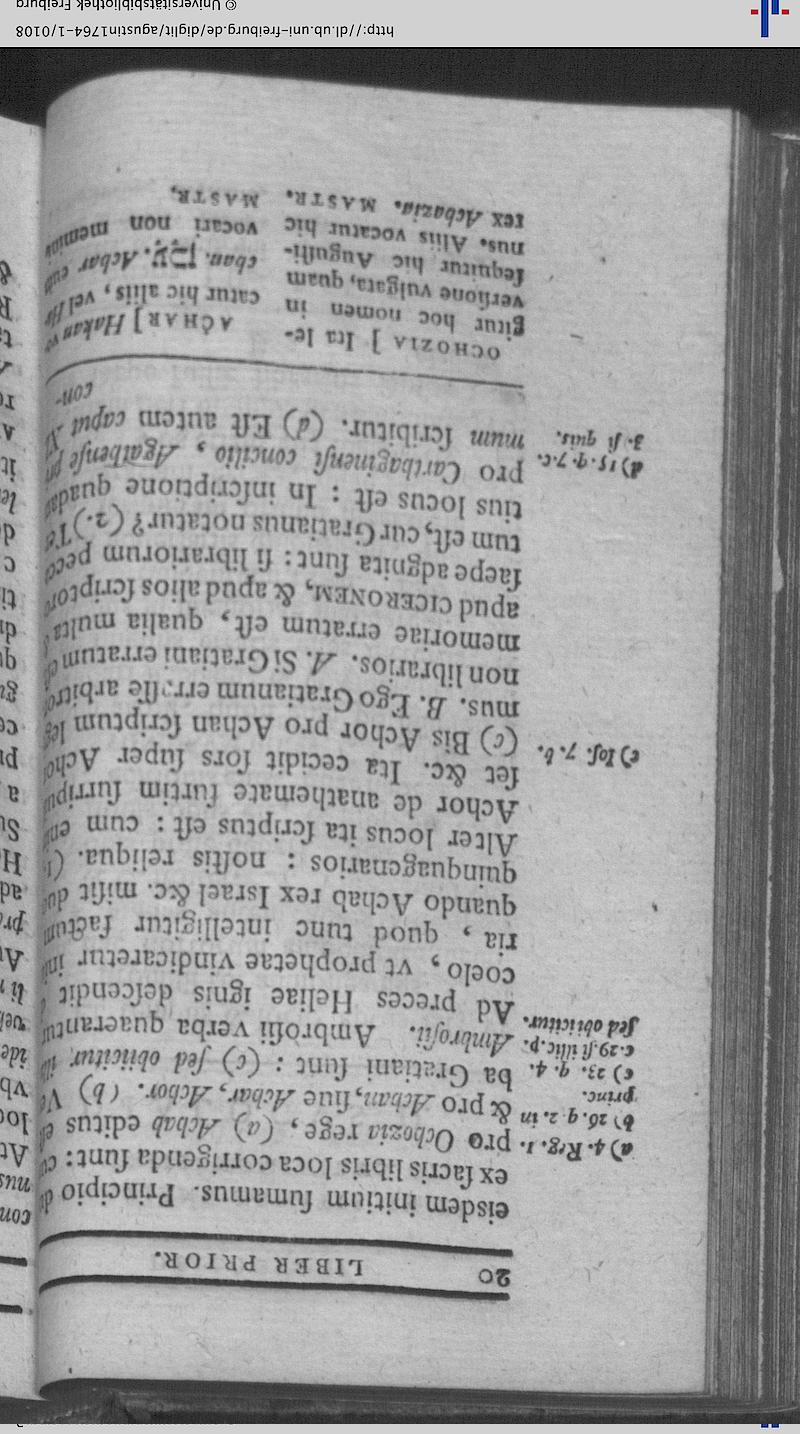 20 LIBER PRIOR.
eisdem initium sumamus. Principio
ex sacris libris loca corrigenda sunt:
a) 4. Reg. 1. pro Ochozia rege, (a) Achab editus
b) 26. q. 2. in princ. & pro Achan, siue Achar, Achor. (b)
c) 23. q. 4. c. 29. §. illic. p. sed obiicitur. ba Gratiani sunt: (c) sed obiicitur,
Ambrosii. Ambrosii verba quaerantur
Ad preces Heliae ignis descendit
coelo, vt prophetae vindicaretur
ria, quod tunc intelligitur factum
quando Achab rex Israel &c. misit
quinquagenarios: nostis reliqua.
Alter locus ita scriptus est: cum
Achor de anathemate furtim
set &c. Ita cecidit sors super
c) Ios. 7. b. (c) Bis Achor pro Achan scriptum
mus. B. Ego Gratianum errasse
non librarios. A. Si Gratiani erratum
memoriae erratum est, qualia multa
apud CICERONEM, & apud alios
saepe adgnita sunt: si librariorum
tum est, cur Gratianus notatur? (2.)
tius locus est: In inscriptione
d) 15. q. 7. c. 3. si quis. pro Carthaginensi concilio, Agathense
mum scribitur. (d) Est autem caput
con-
OCHOZIA ] Ita le-
gitur hoc nomen in
versione vulgata, quam
sequitur hic Augusti-
nus. Aliis vocatur hic
rex Achazia. MASTR.
ACHAR ] Hakan
catur hic aliis, vel
chan. עכן. Achar
vocari non
MASTR.
http://dl.ub.uni-freiburg.de/diglit/agustin1764-1/0108
© Universitätsbibliothek Freiburg